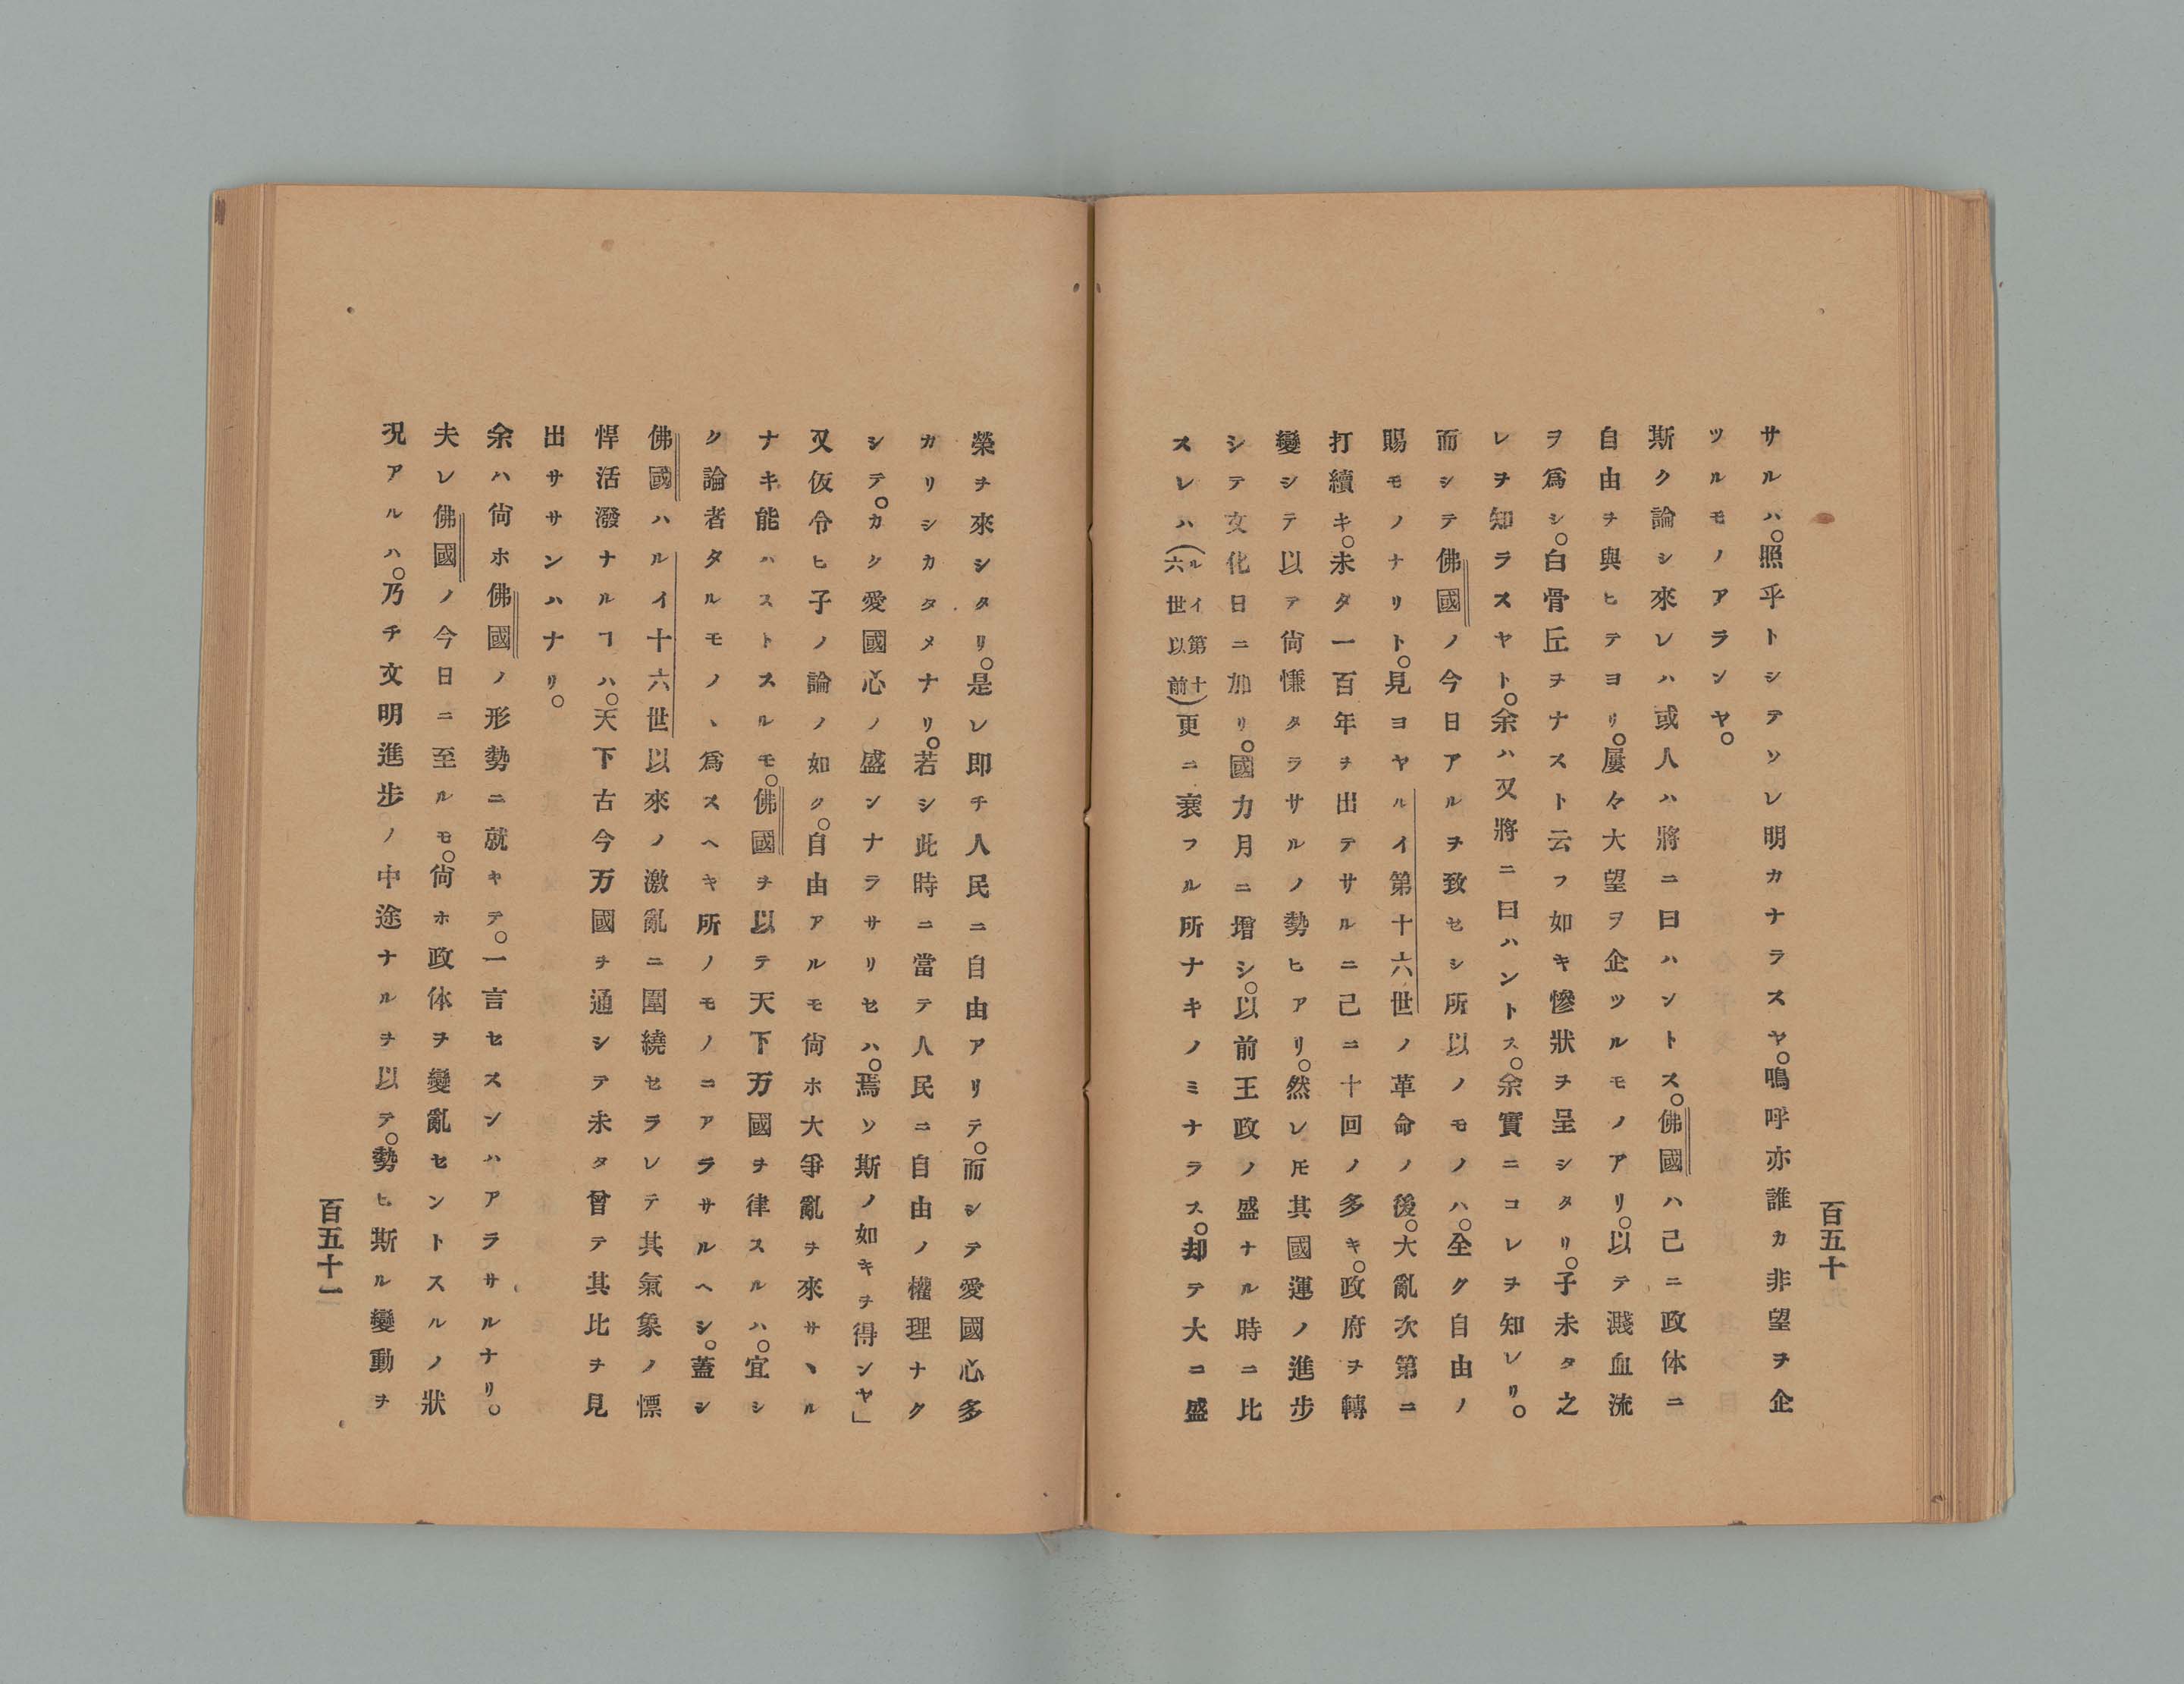 百五十
サルハ。照乎トシテソレ明カナラスヤ。鳴呼亦誰カ非望ヲ企
ツルモノアランヤ。
斯ク論シ來レハ或人ハ將ニ曰ハントス。佛國ハ已ニ政体ニ
自由ヲ與ヒテヨリ。屢々大望ヲ企ツルモノアリ。以テ濺血流
ヲ爲シ。白骨丘ヲナスト云フ如キ慘狀ヲ呈シタリ。子未タ之
レヲ知ラスヤト。余ハ又將ニ曰ハントス。余實ニコレヲ知レリ。
而シテ佛國ノ今日アルヲ致セシ所以ノモノハ。全ク自由ノ
賜モノナリト。見ヨヤルイ第十六世ノ革命ノ後。大亂次第ニ
打續キ。未タ一百年ヲ出テサルニ己ニ十回ノ多キ。政府ヲ轉
變シテ以テ尙慊タラサルノ勢ヒアリ。然レ𪜈其國運ノ進步
シテ文化日ニ加リ。國力月ニ增シ。以前王政ノ盛ナル時ニ比
スレハ(ルイ第十六世以前)更ニ衰フル所ナキノミナラス。却テ大ニ盛
榮ヲ來シタリ。是レ即チ人民ニ自由アリテ。而シテ愛國心多
カリシカタメナリ。若シ此時ニ當テ人民ニ自由ノ權理ナク
シテ。カク愛國心ノ盛ンナラサリセハ。焉ソ斯ノ如キヲ得ンヤ」
又仮令ヒ子ノ論ノ如ク。自由アルモ尙ホ大爭亂ヲ來サヽル
ナキ能ハストスルモ。佛國ヲ以テ天下万國ヲ律スルハ。宜シ
ク論者タルモノヽ爲スヘキ所ノモノニアラサルヘシ。蓋シ
佛國ハルイ十六世以來ノ激亂ニ圍繞セラレテ其氣象ノ慓
悍活潑ナルヿハ。天下古今万國ヲ通シテ未タ曾テ其比ヲ見
出サヽンハナリ。
余ハ尙ホ佛國ノ形勢ニ就キテ。一言セスンハアラサルナリ。
夫レ佛國ノ今日ニ至ルモ。尙ホ政体ヲ變亂セントスルノ狀
況アルハ。乃チ文明進步ノ中途ナルヲ以テ。勢ヒ斯ル變動ヲ
百五十一